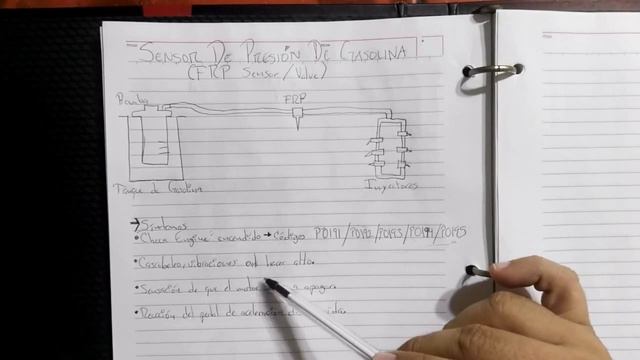 SENSOR DE PRESIÓN DE GASOLINA
(FRP Sensor/Valve)
Bomba
FRP
Tanque de Gasolina
Inyectores
→Síntomas
•Check Engine encendido → Códigos P0191/P0192/P0193/P0194/P0195
•Cascabeleo, vibraciones en hacer alto.
•Sensación de que el motor a apagar.
•Reacción del pedal de aceleración